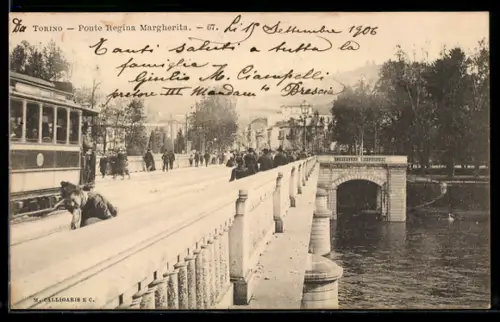 Da TORINO — Ponte Regina Margherita. — 67. Li 15 Settembre 1906
Tanti saluti a tutta la
famiglia
Giulio M. Ciampelli
pretore III Mandam.to Brescia
M. CALLIGARIS E C.